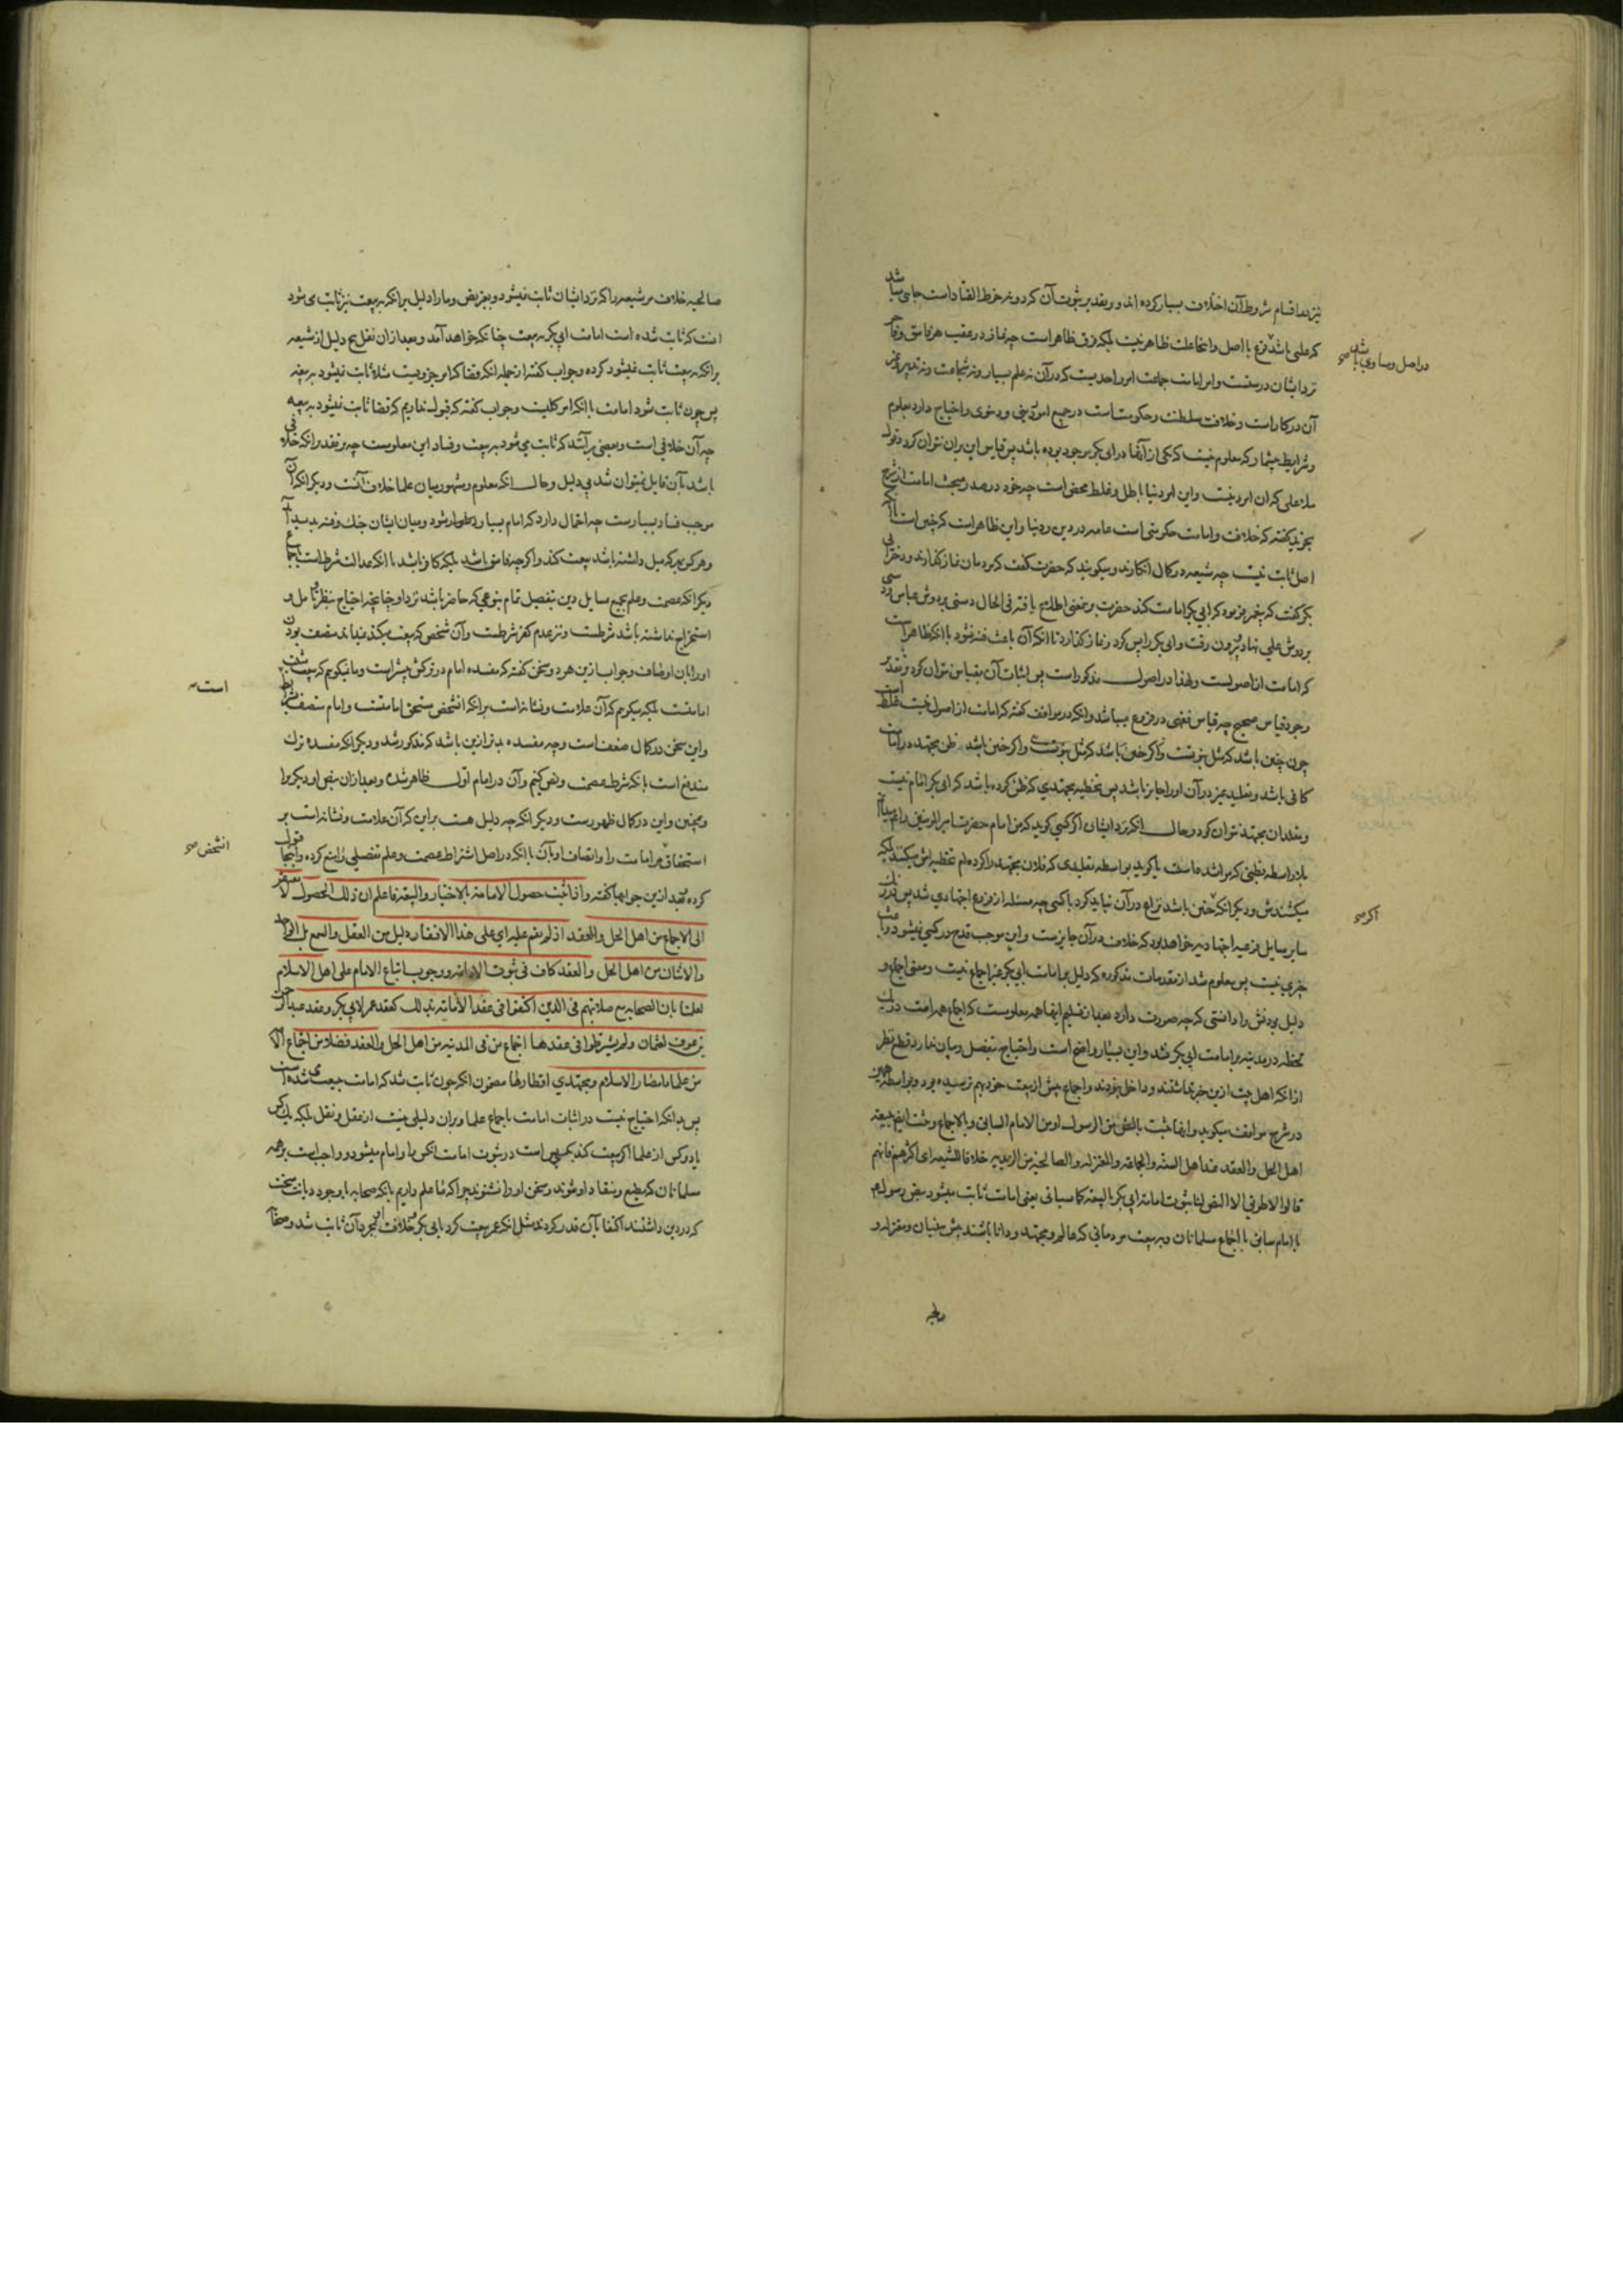 نیز در اقسام شروط آن اختلاف بسیار کرده اند و بر تقدیر ثبوت آن کرد و نه خرط القتاد است جایی میباشد
که علتی باشد فرع با اصل و اینجا علت ظاهر نیست بلکه فرق ظاهر است چه نماز در عقب هر فاسق و فاجر
در اصل و مساوی باشد صح
نزد ایشان درستست و امر امامت جماعت امر واحدیست که در آن نه علم بسیار و نه شجاعت و نه تدبیر و غیر
آن در کار است و خلافت سلطنت و حکومتست در جمیع امور دینی و دنیوی و احتیاج دارد بعلوم
و شرایط بیشمار که معلوم نیست که یکی از آنها در ابی بکر موجود بوده باشد پس قیاس این بر آن نتوان کرد و قول
ملا علی که آن امر دینست و این امر دنیا باطل و غلط محض است چه خود در صدر مبحث امامت از شرح
تجرید گفته که خلافت و امامت حکومتی است عامه در دین و دنیا و این ظاهر است که چنین است با آنکه
اصل ثابت نیست چه شیعه در کمال انکارند و میگویند که حضرت نگفت که مردمان نماز گذارند و دختر ابی
بکر گفت که پیغمبر فرمود که ابی بکر امامت کند حضرت بر معنی اطلاع یافته فی الحال دستی بر دوش عباس و دستی
بر دوش علی نهاد بیرون رفت و ابی بکر را پس کرد و نماز گذارد تا آنکه آن باعث فتنه نشود با آنکه ظاهر است
که امامت از اصولست و لهذا در اصول مذکور است پس اثبات آن بقیاس نتوان کرد و بر تقدیر
وجود قیاس صحیح چه قیاس فقهی در فروع میباشد و آنکه در مواقف گفته که امامت از اصول نیست غلط است
چون چنین باشد که مثل نبوتست و اگر چنین باشد که مثل نبوتست و اگر چنین باشد ظن مجتهد در امامت
کافی باشد و تقلید غیر در آن او را جایز باشد پس تخطیه مجتهدی که ظن کرده باشد که ابی بکر امام نیست
و مقلدان مجتهد نتوان کرد و حال آنکه نزد ایشان اگر کسی گوید که من امام حضرت امیر المؤمنین را میدانم
بلا واسطه بظنی که مرا شده ماست یا گوید بواسطه تقلیدی که فلان مجتهد را کرده ام تخطیه اش میکنند بلکه
میکشندش و دیگر آنکه چنین باشد نزاع در آن نباید کرد با کسی چه مسئله از فروع اجتهادی شد پس مانند
اگر صح
سایر مسایل فرعیه اجتهادیه خواهد بود که خلاف در آن جایزست و این موجب قدح در کسی نمیشود و باعث
جرحی نیست پس معلوم شد از مقدمات مذکوره که دلیل بر امامت ابی بکر غیر اجماع نیست و معنی اجماع و
دلیل بودنش را دانستی که چه صورت دارد بعد از تسلیم اینها همه معلومست که اجماع همه امت در یک
لحظه در مدینه بر امامت ابی بکر نشد و این بسیار واضح است و احتیاج بتفصیل و بیان ندارد قطع نظر
از آنکه اهل بیت ازین خبر نداشتند و داخل نبودند و اجماع پیش از بیعت خود بهم نرسیده بود و بواسطه همین
در شرح مواقف میگوید و انها تثبت بالنص من الرسول او من الامام السابق و بالاجماع و تثبت ایضا ببیعة
اهل الحل و العقد عند اهل السنة و الجماعة و المعتزلة و الصالحیة من الزیدیة خلافا للشیعة ای اکثرهم فانهم
قالوا لا طریق الا النص لنا ثبوت امامة ابی بکر بالبیعة کما سیاتی یعنی امامت ثابت میشود بنص رسولم
یا امام سابق یا اجماع مسلمانان و ببیعت مردمانی که عالم و مجتهد و دانا باشند پیش سنیان و معتزله و
صالحیه خلاف مر شیعه را که نزد ایشان ثابت نمیشود و بغیر نص و ما را دلیل بر آنکه ببیعت نیز ثابت می شود
آنست که ثابت شده است امامت ابی بکر ببیعت چنانکه خواهد آمد و بعد از آن نقل پنج دلیل از شیعه
بر آنکه ببیعت ثابت نمیشود کرده و جواب گفته از جمله آنکه قضا که امر جزویست مثلا ثابت نمیشود ببیعت
پس چون ثابت شود امامت با آنکه امر کلیست و جواب گفته که قبول نداریم که قضا ثابت نمیشود ببیعت
چه آن خلافی است و بعضی بر آنند که ثابت می شود ببیعت و فساد این معلومست چه بر تقدیر آنکه خلافی
باشد بآن قایل نمیتوان شد بی دلیل و حال آنکه معلوم و مشهور میان علما خلاف آنست و دیگر آنکه آن
موجب فساد بسیارست چه احتمال دارد که امام بسیار در یک وقت شود و میان ایشان جنگ و فتنه پدید آید
و هر کس بهر که میل داشته باشد بیعت کند و اگر چه فاسق باشد بلکه کافر باشد با آنکه عدالت شرطست اجماعا
دیگر آنکه عصمت و علم بجمیع مسایل دین بتفصیل تمام بنوعی که حاضر باشد نزد او چنانچه احتیاج بنظر و تامل و
استخراج نداشته باشد شرطست و نیز عدم کفر شرطست و آن شخص که بیعت میکند نمیداند متصف بودن
او را بآن اوصاف و جواب ازین هر دو سخن گفته که مفسده امام در ترکش بیشتر است و ما نمیگویم که بیعت مثبت
امامتست بلکه میگویم که آن علامت و نشانه است بر آنکه آنشخص مستحق امامتست و امام متصف بشرایط
است صح
و این سخن در کمال ضعف است و چه مفسده بدتر ازین باشد که مذکور شد و دیگر آنکه مفسده ترک
مندفع است بآنکه شرط عصمت و نص کنیم و آن در امام اول ظاهر شده و بعد از آن بنص او دیگری را
و همچنین و این در کمال ظهورست و دیگر آنکه چه دلیل هست بر این که آن علامت و نشانه است بر
استحقاق مر امامت را و اتصاف او بآن با آنکه در اصل اشتراط عصمت و علم تفصیلی را منع کرده و اینجا قبول
آنشخص صح
کرده بعد ازین جوابها گفته و اذا ثبت حصول الامامة بالاختیار و البیعة فاعلم ان ذلک الحصول لا یفتقر
الی الاجماع من اهل الحل و العقد اذ لم یقم علیه ای علی هذا الافتقار دلیل من العقل و السمع بل الواحد
و الاثنان من اهل الحل و العقد کاف فی ثبوت الامامة و وجوب اتباع الامام علی اهل الاسلام
لعلمنا بان الصحابة مع صلابتهم فی الدین اکتفوا فی عقد الامامة بذلک کعقد عمر لابی بکر و عقد عبد الرحمن
بن عوف لعثمان و لم یشترطوا فی عقدها اجتماع من فی المدینة من اهل الحل و العقد فضلا من اجماع الامة
من علما امصار الاسلام و مجتهدی اقطارها مضمون آنکه چون ثابت شد که امامت ببیعت می شده است
پس بدانکه احتیاج نیست در اثبات امامت باجماع علما و بر آن دلیلی نیست از عقل و نقل بلکه یک کس
یا دو کس از علما اگر بیعت کند بکسی بس است در ثبوت امامت آنکس را و امام میشود و واجب است بر همه
مسلمانان که مطیع و منقاد او شوند و سخن او را شنوند چرا که ما علم داریم بآنکه صحابه با وجود دیانت سخت
که در دین داشتند اکتفا بآن قدر کردند مثل آنکه عمر بیعت کرد بابی بکر خلافت او بمجرد آن ثابت شد و صحابه